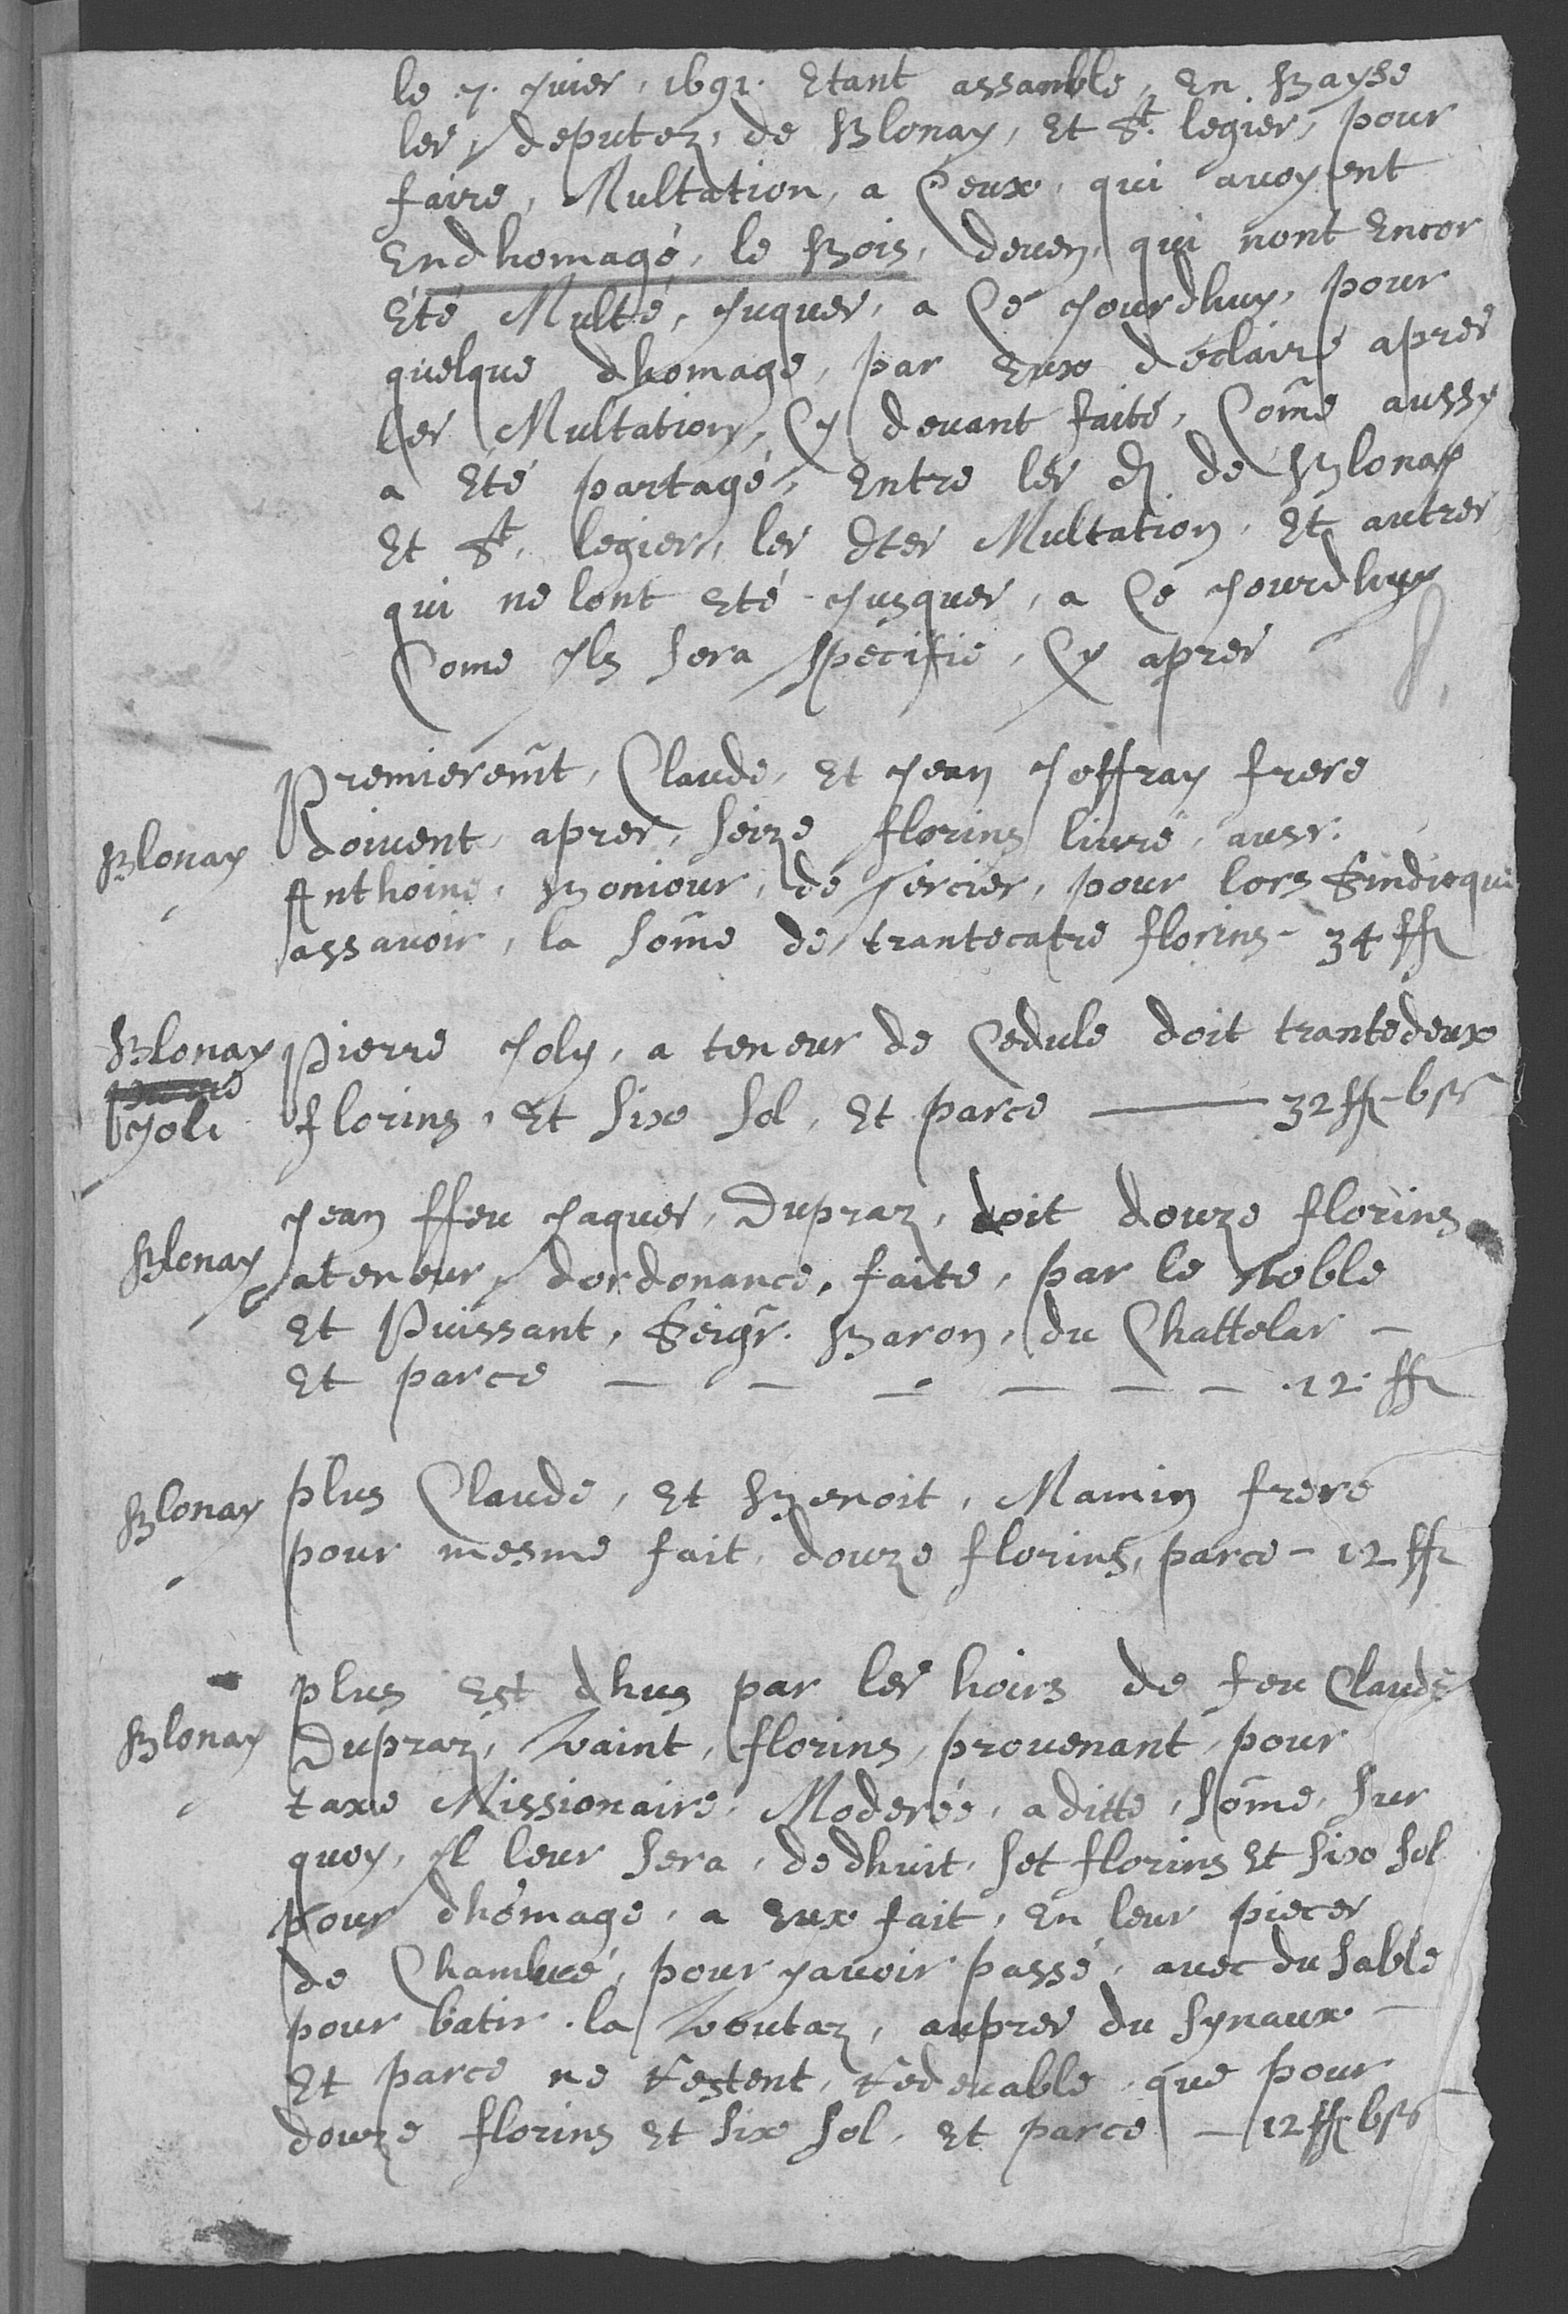 le 7. Jvier, 1691. Etant assamble, En Bayse
les deputez, de Blonay, Et St. legier, pour
faire, Multation, a Ceux, qui avoyent
Endhomagé, le Bois, deven, qui nont Encor
Été Multé, Juques, a Cé Jourdhuy, pour
quelque dhomage, par Eux déclairé apres
les Multation, Cy devant faité, Cõme aussy
a Été partagé, Entre les dt de Blonay
Et St, legier, les dtes Multation, Et autres
qui ne lont Eté Jusques, a Cé Jourdhuy
Come Jls sera specifié, Cy apres
Premieremt, Claude, Et Jean Joffray frere
Blonay doivent, apres, seize florins livré, aux.
Anthoine, Boniour, de tercier, pour lors Sindicque
assavoir, la sõme de trantecatre florins - 34 ff
Blonay Pierre Joly, a teneur de Cedule doit trantedeux
Joli florins, Et six sol, Et parce 32 ff - 6 ss
Jean ffeu Jaques, Dupraz, doit douze florins
Blonay ateneur, dordonance, faite, par le Noble
Et Puissant, Seigr. Baron, du Chattelar -
Et parce - - - - - - .12. ff
Blonay plus Claude, Et Benoit, Mamin frere
pour mesme fait, douze florins, parce - 12 ff
plus Est dhus par les hoirs de feu Claude
Blonay Dupraz, Vaint, florins, provenant, pour
taxe Missionaire, Moderée, a ditte, sõme, sur
quoy, Jl leur sera, dedhuit, set florins Et six sol
pour dhomage, a Eux fait, En leur pieces
de pour yavoir passé, avec du sable
pour batir. la Voutaz, aupres du Synaux -
Et parce ne restent, redevable que pour
douze florins Et six sol, Et parce - 12 ff 6 ss